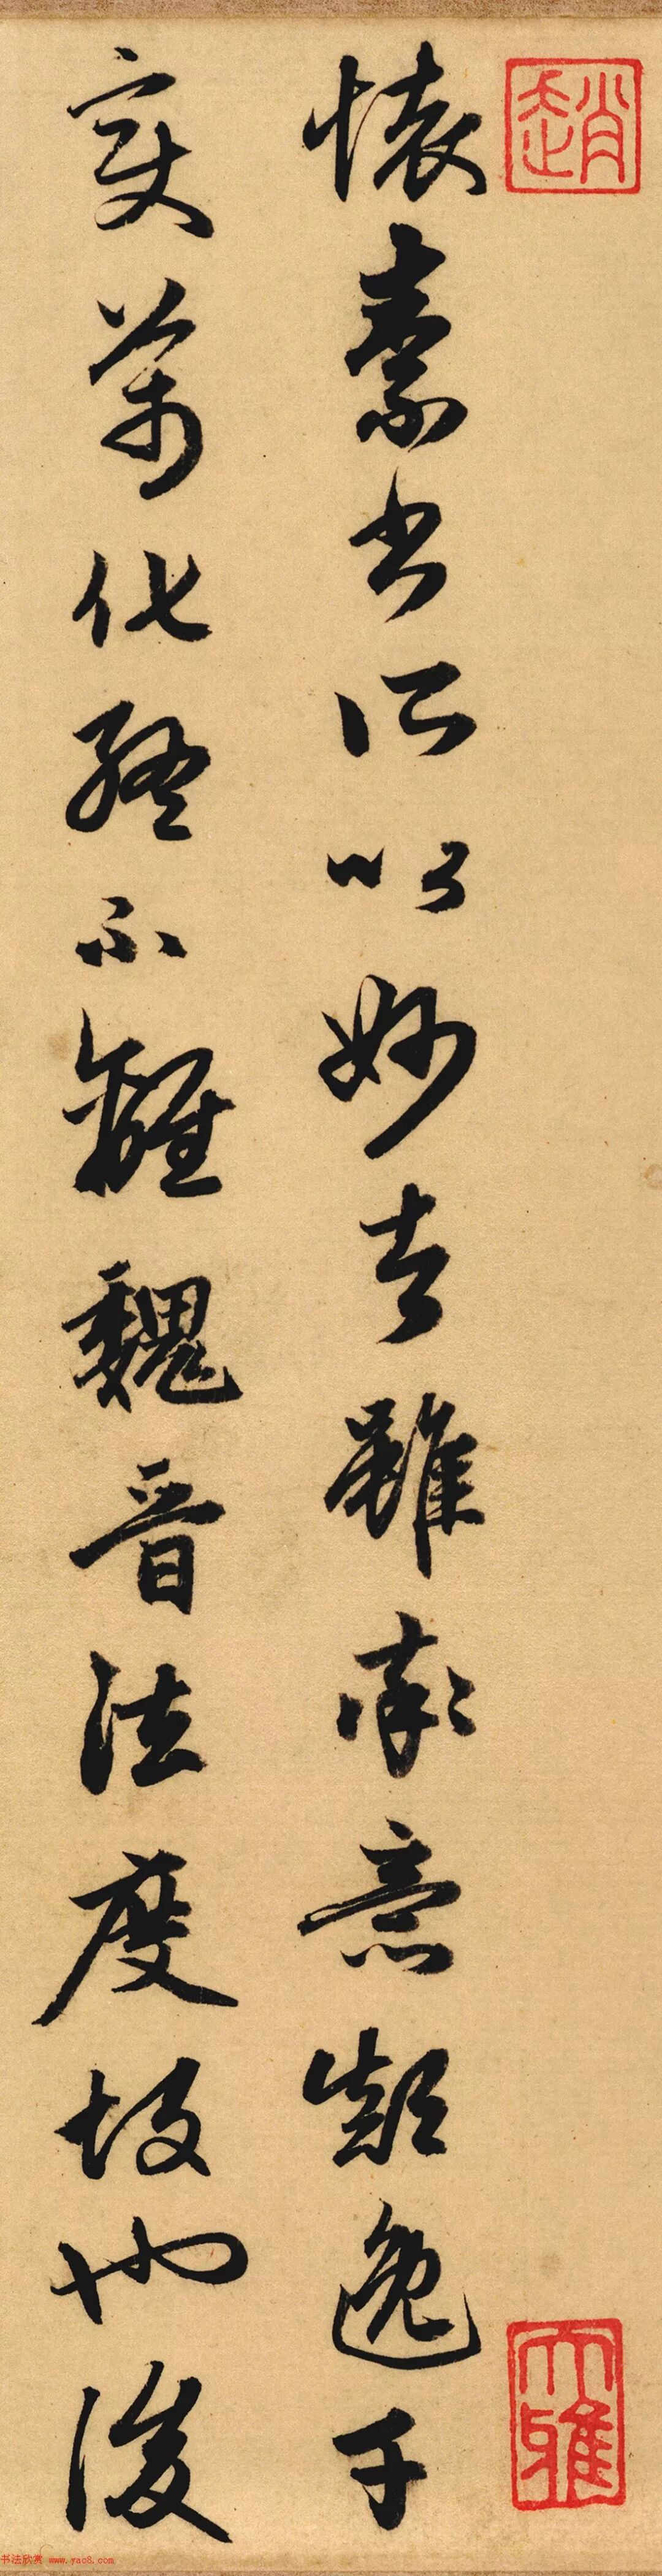 趙
大雅
懷素書所以妙者雖率意顛逸千
變萬化終不離魏晉法度故也後
书法欣赏 www.yac8.com